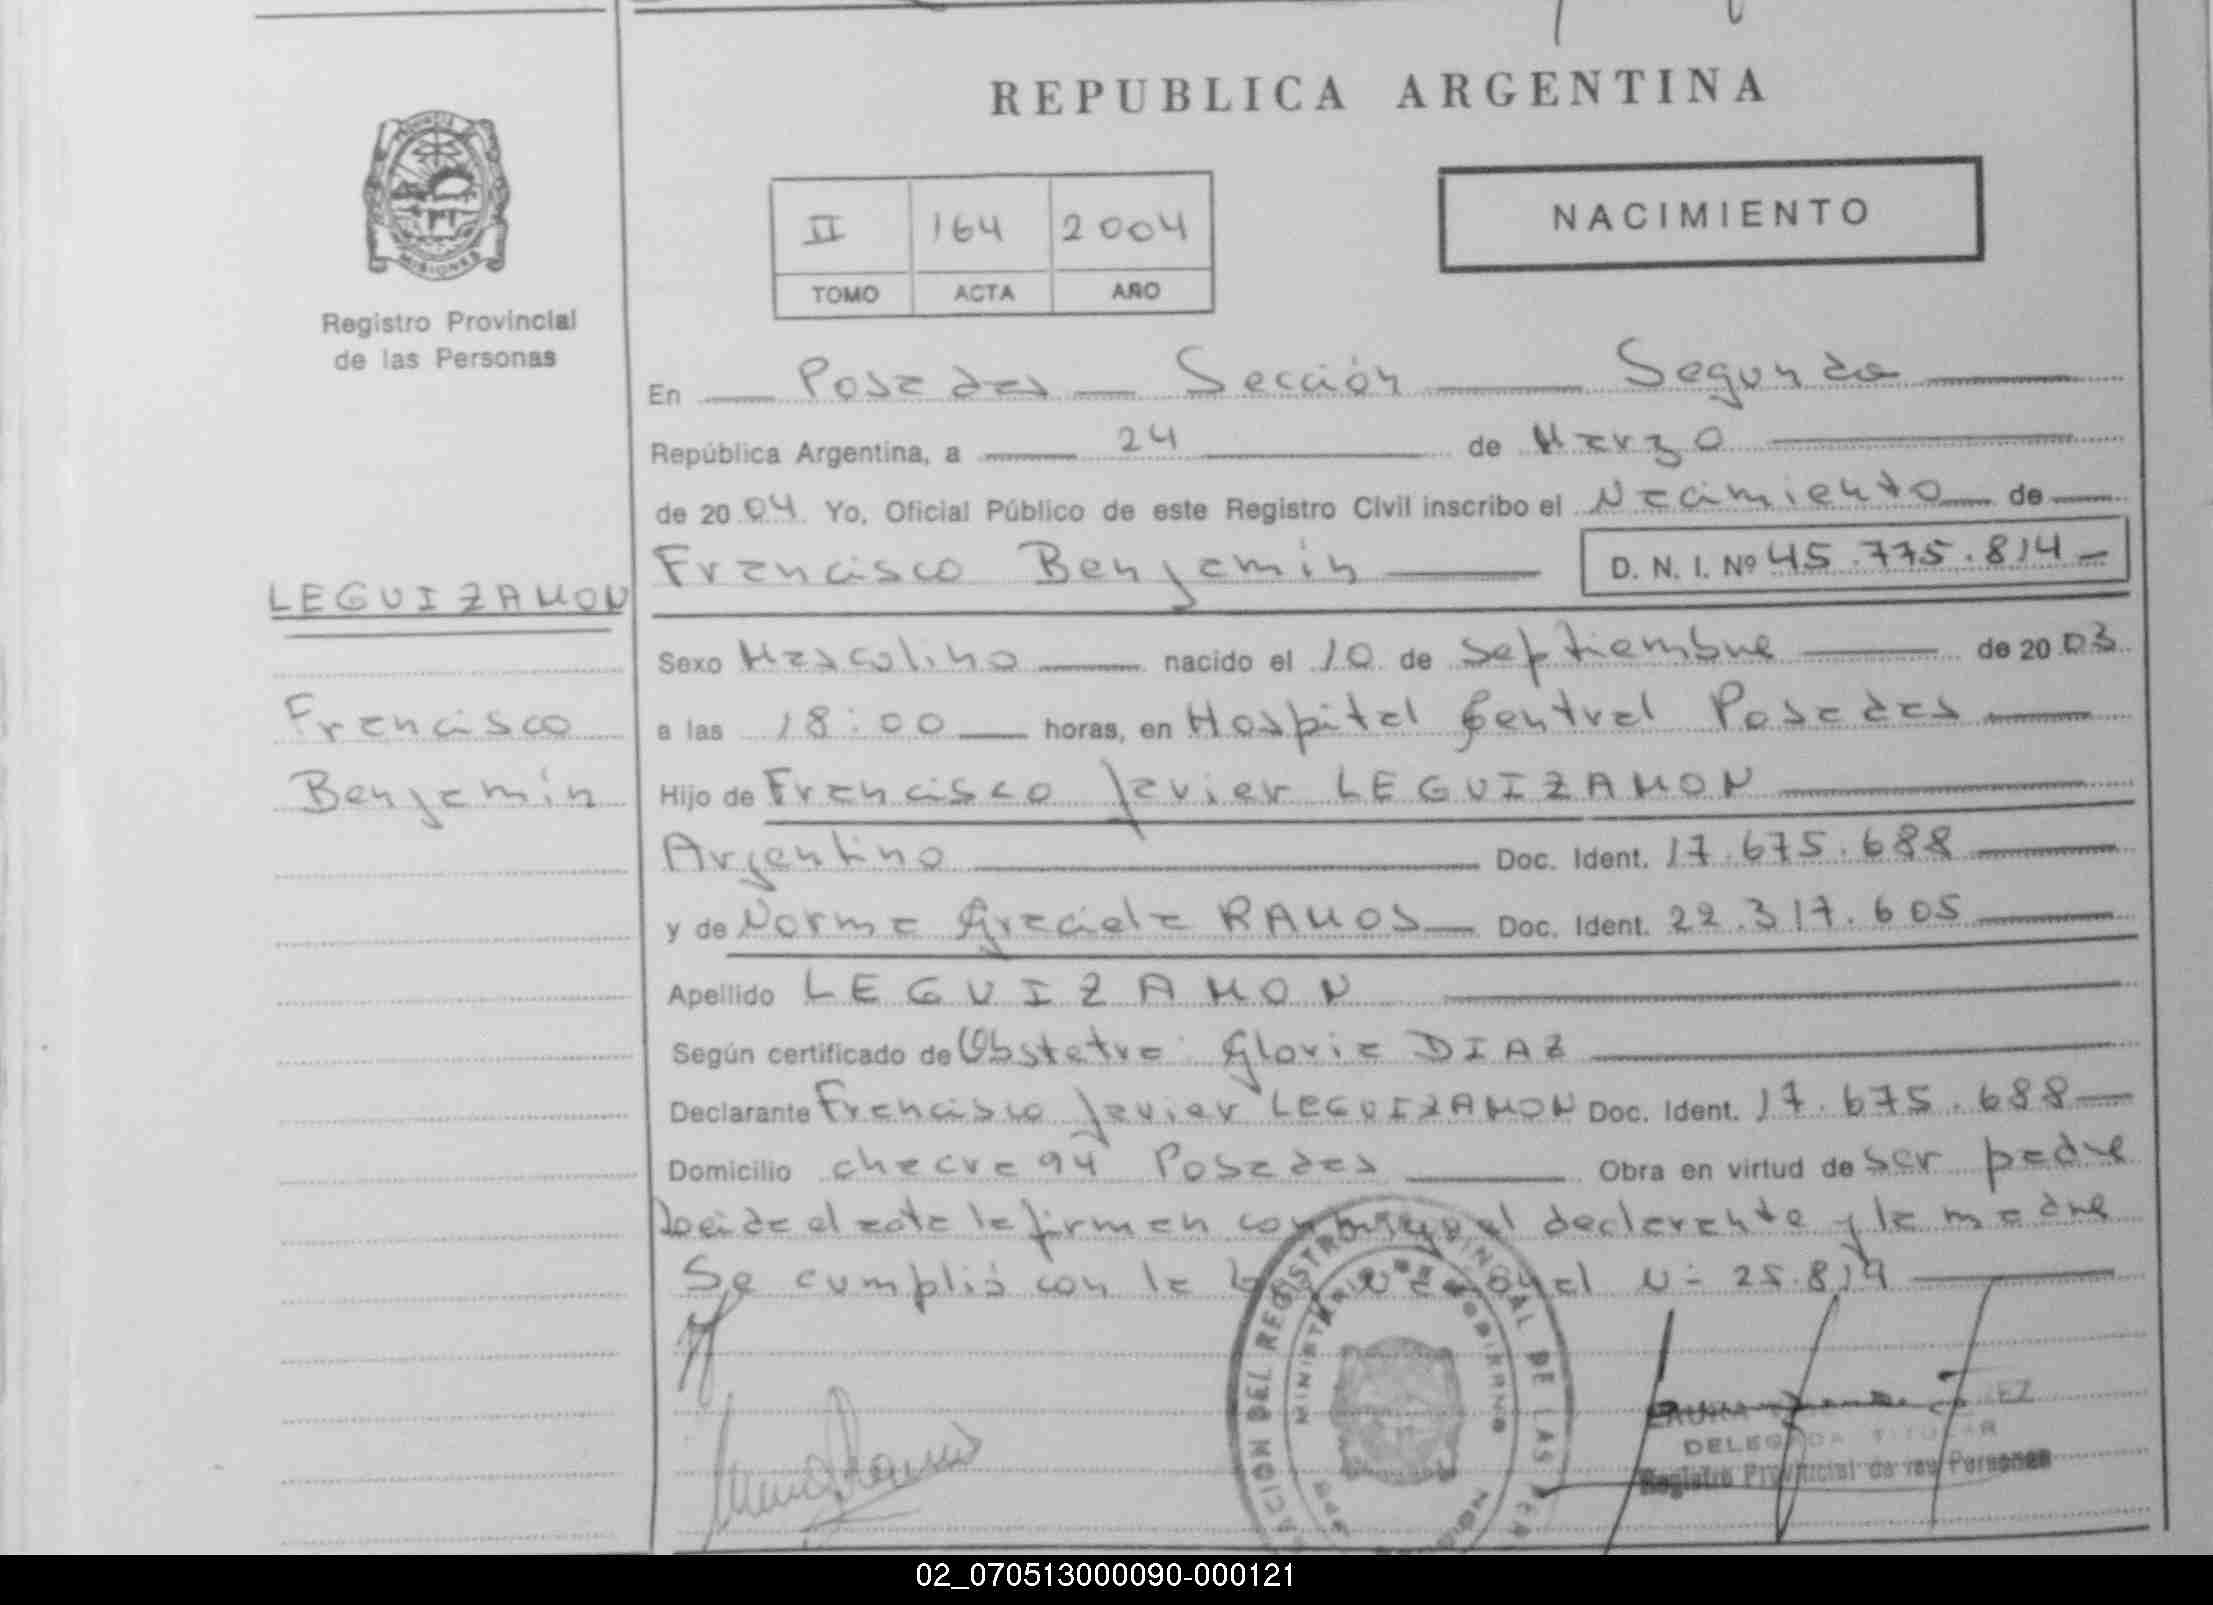 REPUBLICA ARGENTINA
PROVINCIA
MISIONES
Registro Provincial
de las Personas
II 164 2004
TOMO ACTA AÑO
NACIMIENTO
En Posadas Sección Segunda
República Argentina, a 24 de Marzo
de 2004 Yo, Oficial Público de este Registro Civil inscribo el Nacimiento de
Francisco Benjamín D. N. I. Nº 45.775.814
LEGUIZAMON
Francisco
Benjamín
Sexo Masculino nacido el 10 de Septiembre de 2003
a las 18:00 horas, en Hospital Central Posadas
Hijo de Francisco Javier LEGUIZAMON
Argentino Doc. Ident. 17.675.688
y de Norma Graciela RAMOS Doc. Ident. 22.317.605
Apellido LEGUIZAMON
Según certificado de Obstetra Gloria DIAZ
Declarante Francisco Javier LEGUIZAMON Doc. Ident. 17.675.688
Domicilio chacra 94 Posadas Obra en virtud de ser padre
Leída el acta la firman conmigo el declarante y la madre
Se cumplió con la Ley Nacional N= 25.819
DEL REGISTRO PROVINCIAL DE LAS
MINISTERIO DE GOBIERNO
DELEGADA TITULAR
Registro Provincial de las Personas
02_070513000090-000121